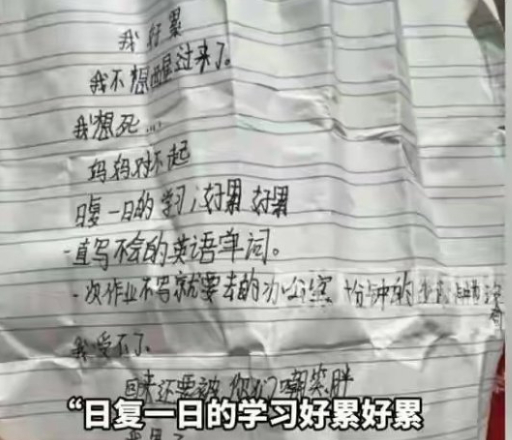 我好累
我不想醒过来了。
我想死...
妈妈对不起
日复一日的学习,好累好累
一直写不会的英语单词。
一次作业不写就要去的办公室 十分钟的
我受不了
回来还要被你们嘲笑胖
“日复一日的学习好累好累